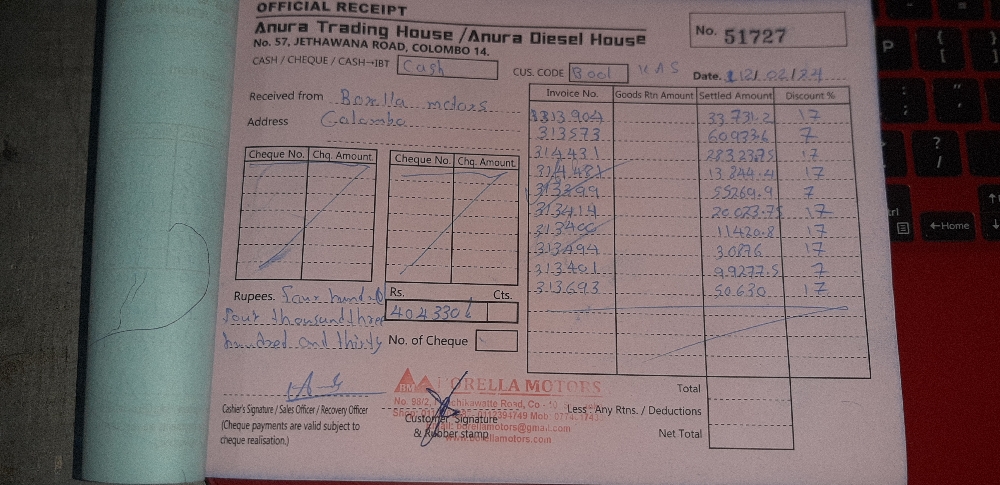 OFFICIAL RECEIPT
Anura Trading House /Anura Diesel House
No. 57, JETHAWANA ROAD, COLOMBO 14.
No. 51727
CASH / CHEQUE / CASH→IBT Cash
CUS. CODE
Date. 12/02/24
Received from Borella motors
Address Colombo
Invoice No. Goods Rtn Amount Settled Amount Discount %
313904 33.731.2 17
313573 60933.6 7
314431 28323.75 17
314481 13.844.4 17
313399 55269.9 7
313414 20.023.75 17
11420.8 17
313494 3.0876 17
313401 99277.5 7
313693 50.630 17
Cheque No. Chq. Amount
Cheque No. Chq. Amount
Rupees. Four hund
Four thousund three
hundred and thirty
Rs. Cts.
404330
No. of Cheque
Cashier's Signature / Sales Officer / Recovery Officer
(Cheque payments are valid subject to
cheque realisation.)
BM BORELLA MOTORS
No. 98/2,
Customer Signature
& Rubber stamp
borellamotors@gmail.com
www.borellamotors.com
Total
Less : Any Rtns. / Deductions
Net Total
P
{
[
}
]
:
;
"
'
?
/
←Home